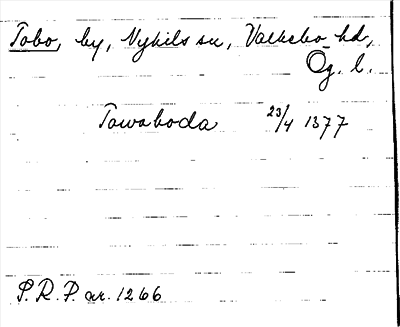 Tobo, by, Nykils sn, Valkebo hd,
Ög. l.
Towaboda 23/4 1377
S.R.P. nr. 1266